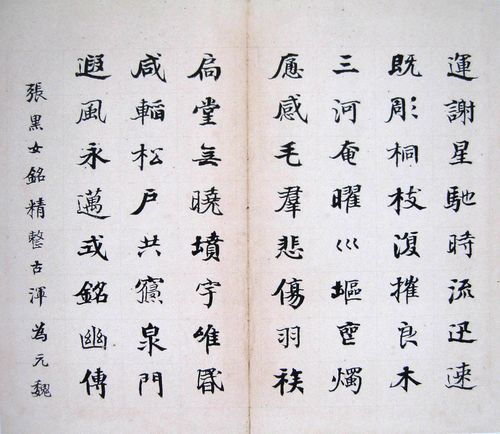 運謝星馳時流迅速
既彫桐枝復摧良木
三河奄曜巛燭
應感毛羣悲傷羽族
扃堂無曉墳宇唯昏
咸韜松戶共寢泉門
遐風永邁式銘幽傳
張黑女銘精整古渾為元魏